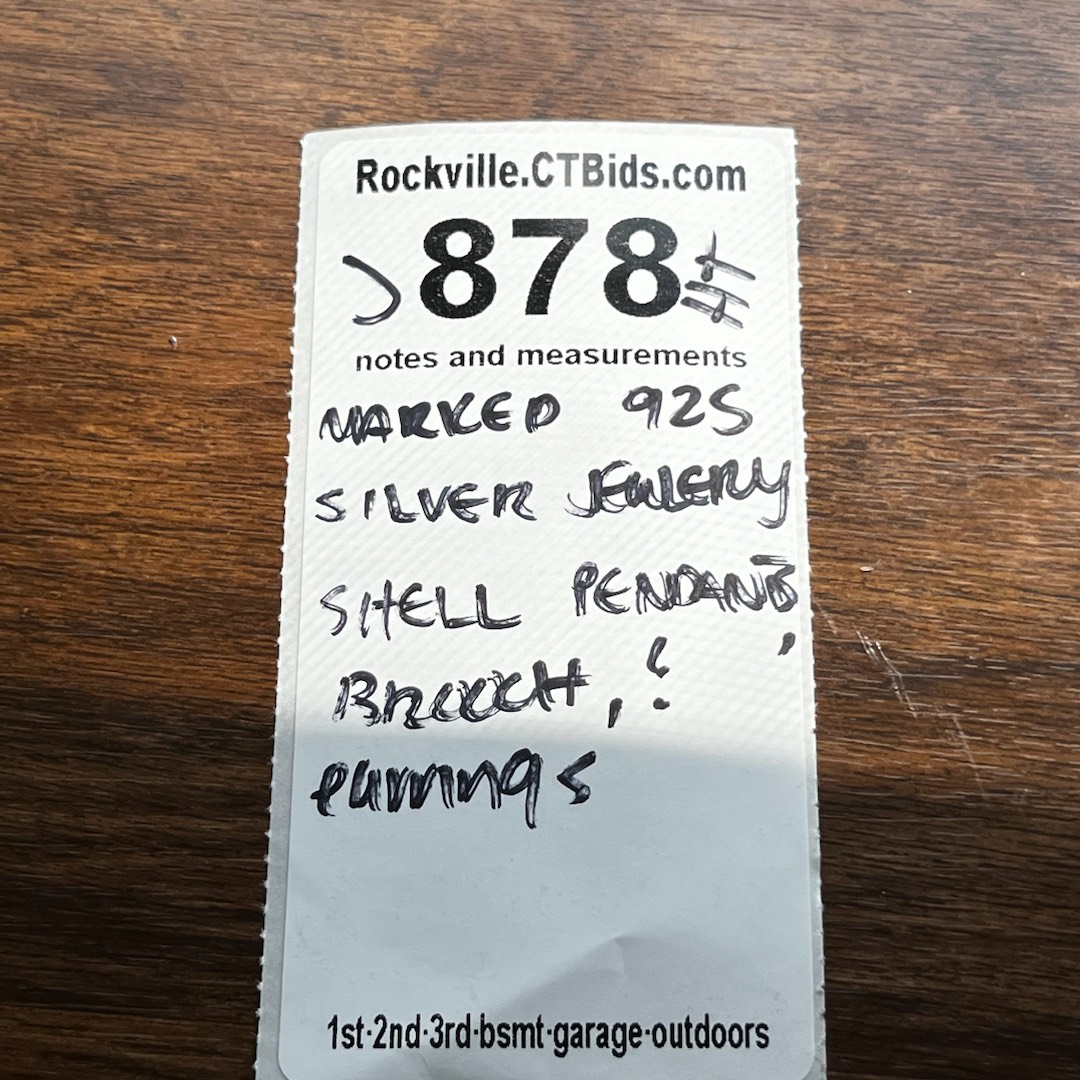 Rockville.CTBids.com
) 878 HT
notes and measurements
MARKED 925
SILVER JEWLERY
SHELL PENDANTS,
BROOCH, &
earrings
1st·2nd·3rd·bsmt·garage·outdoors